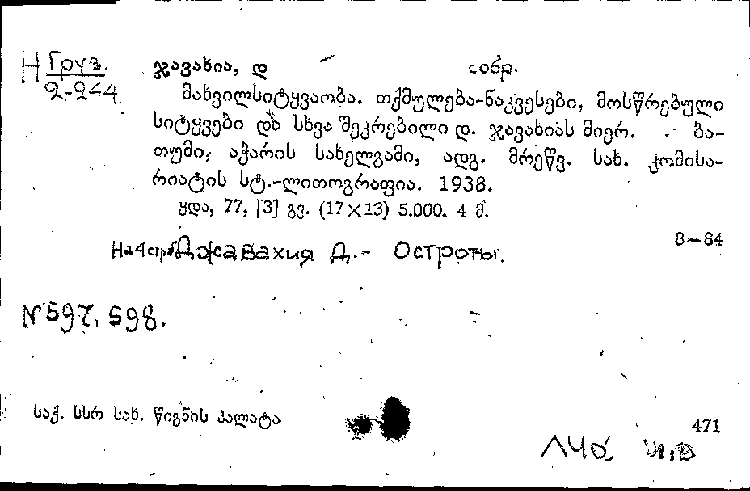 Н Груз. ჯავახია, დ собр.
2-244 მახვილსიტყვაობა. თქმულება-ნაკვესები, მოსწრებული
სიტყვები და სხვა შეკრებილი დ. ჯავახიას მიერ. ბა-
თუმი, აჭარის სახელგამი, ადგ. მრეწვ. სახ. კომისა-
რიატის სტ.-ლითოგრაფია. 1938.
ყდა, 77, [3] გვ. (17×13) 5.000. 4 მ.
8-84
Джавахия Д.- Остроты.
N 597, 598.
საქ. სსრ სახ. წიგნის პალატა
471